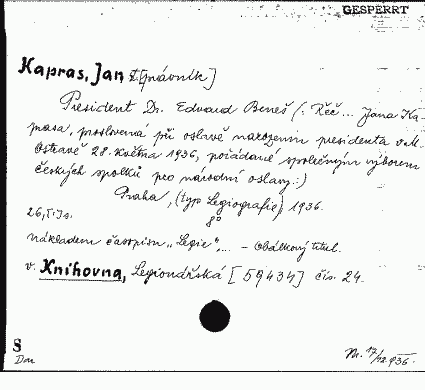 GESPERRT
Kapras, Jan [právník]
President Dr. Edvard Beneš (: Řeč ... Jana Ka-
prasa, proslovená při oslavě narozenin presidenta v M.
Ostravě 28. května 1936, pořádané společným výborem
českých spolků pro národní oslavy :)
Praha, (typ. Legiografie) 1936.
8°
26, [1] s.
nákladem časopisu „Legie", ... - Obálkový titul.
v. Knihovna, Legionářská [59434] čís. 24.
S
Dar
17/12 936.